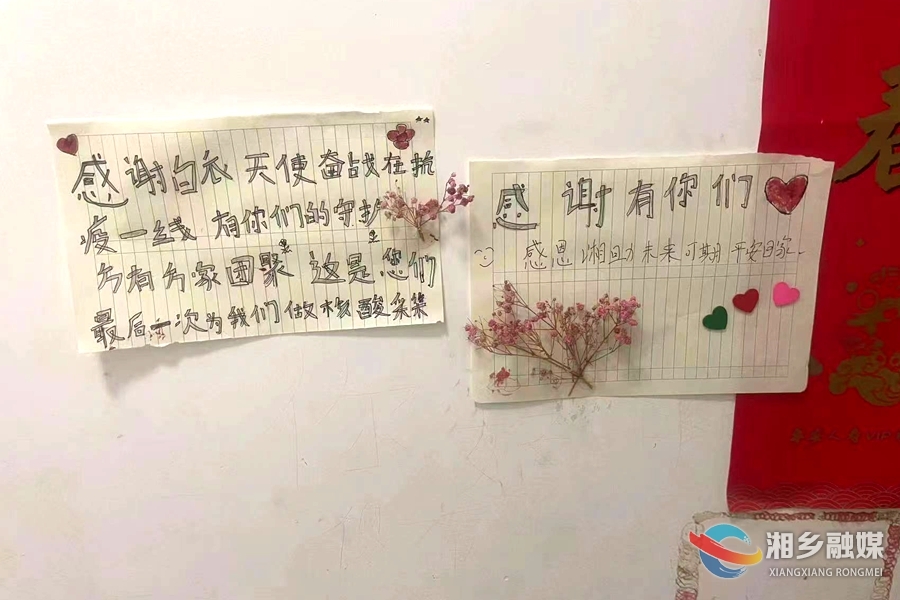 感谢白衣天使奋战在抗
疫一线 有你们的守护
方有万家团聚 这是您们
最后一次为我们做核酸采集
感谢有你们
感恩 湘回 未来可期 平安回家
春
湘乡融媒
XIANGXIANG RONGMEI